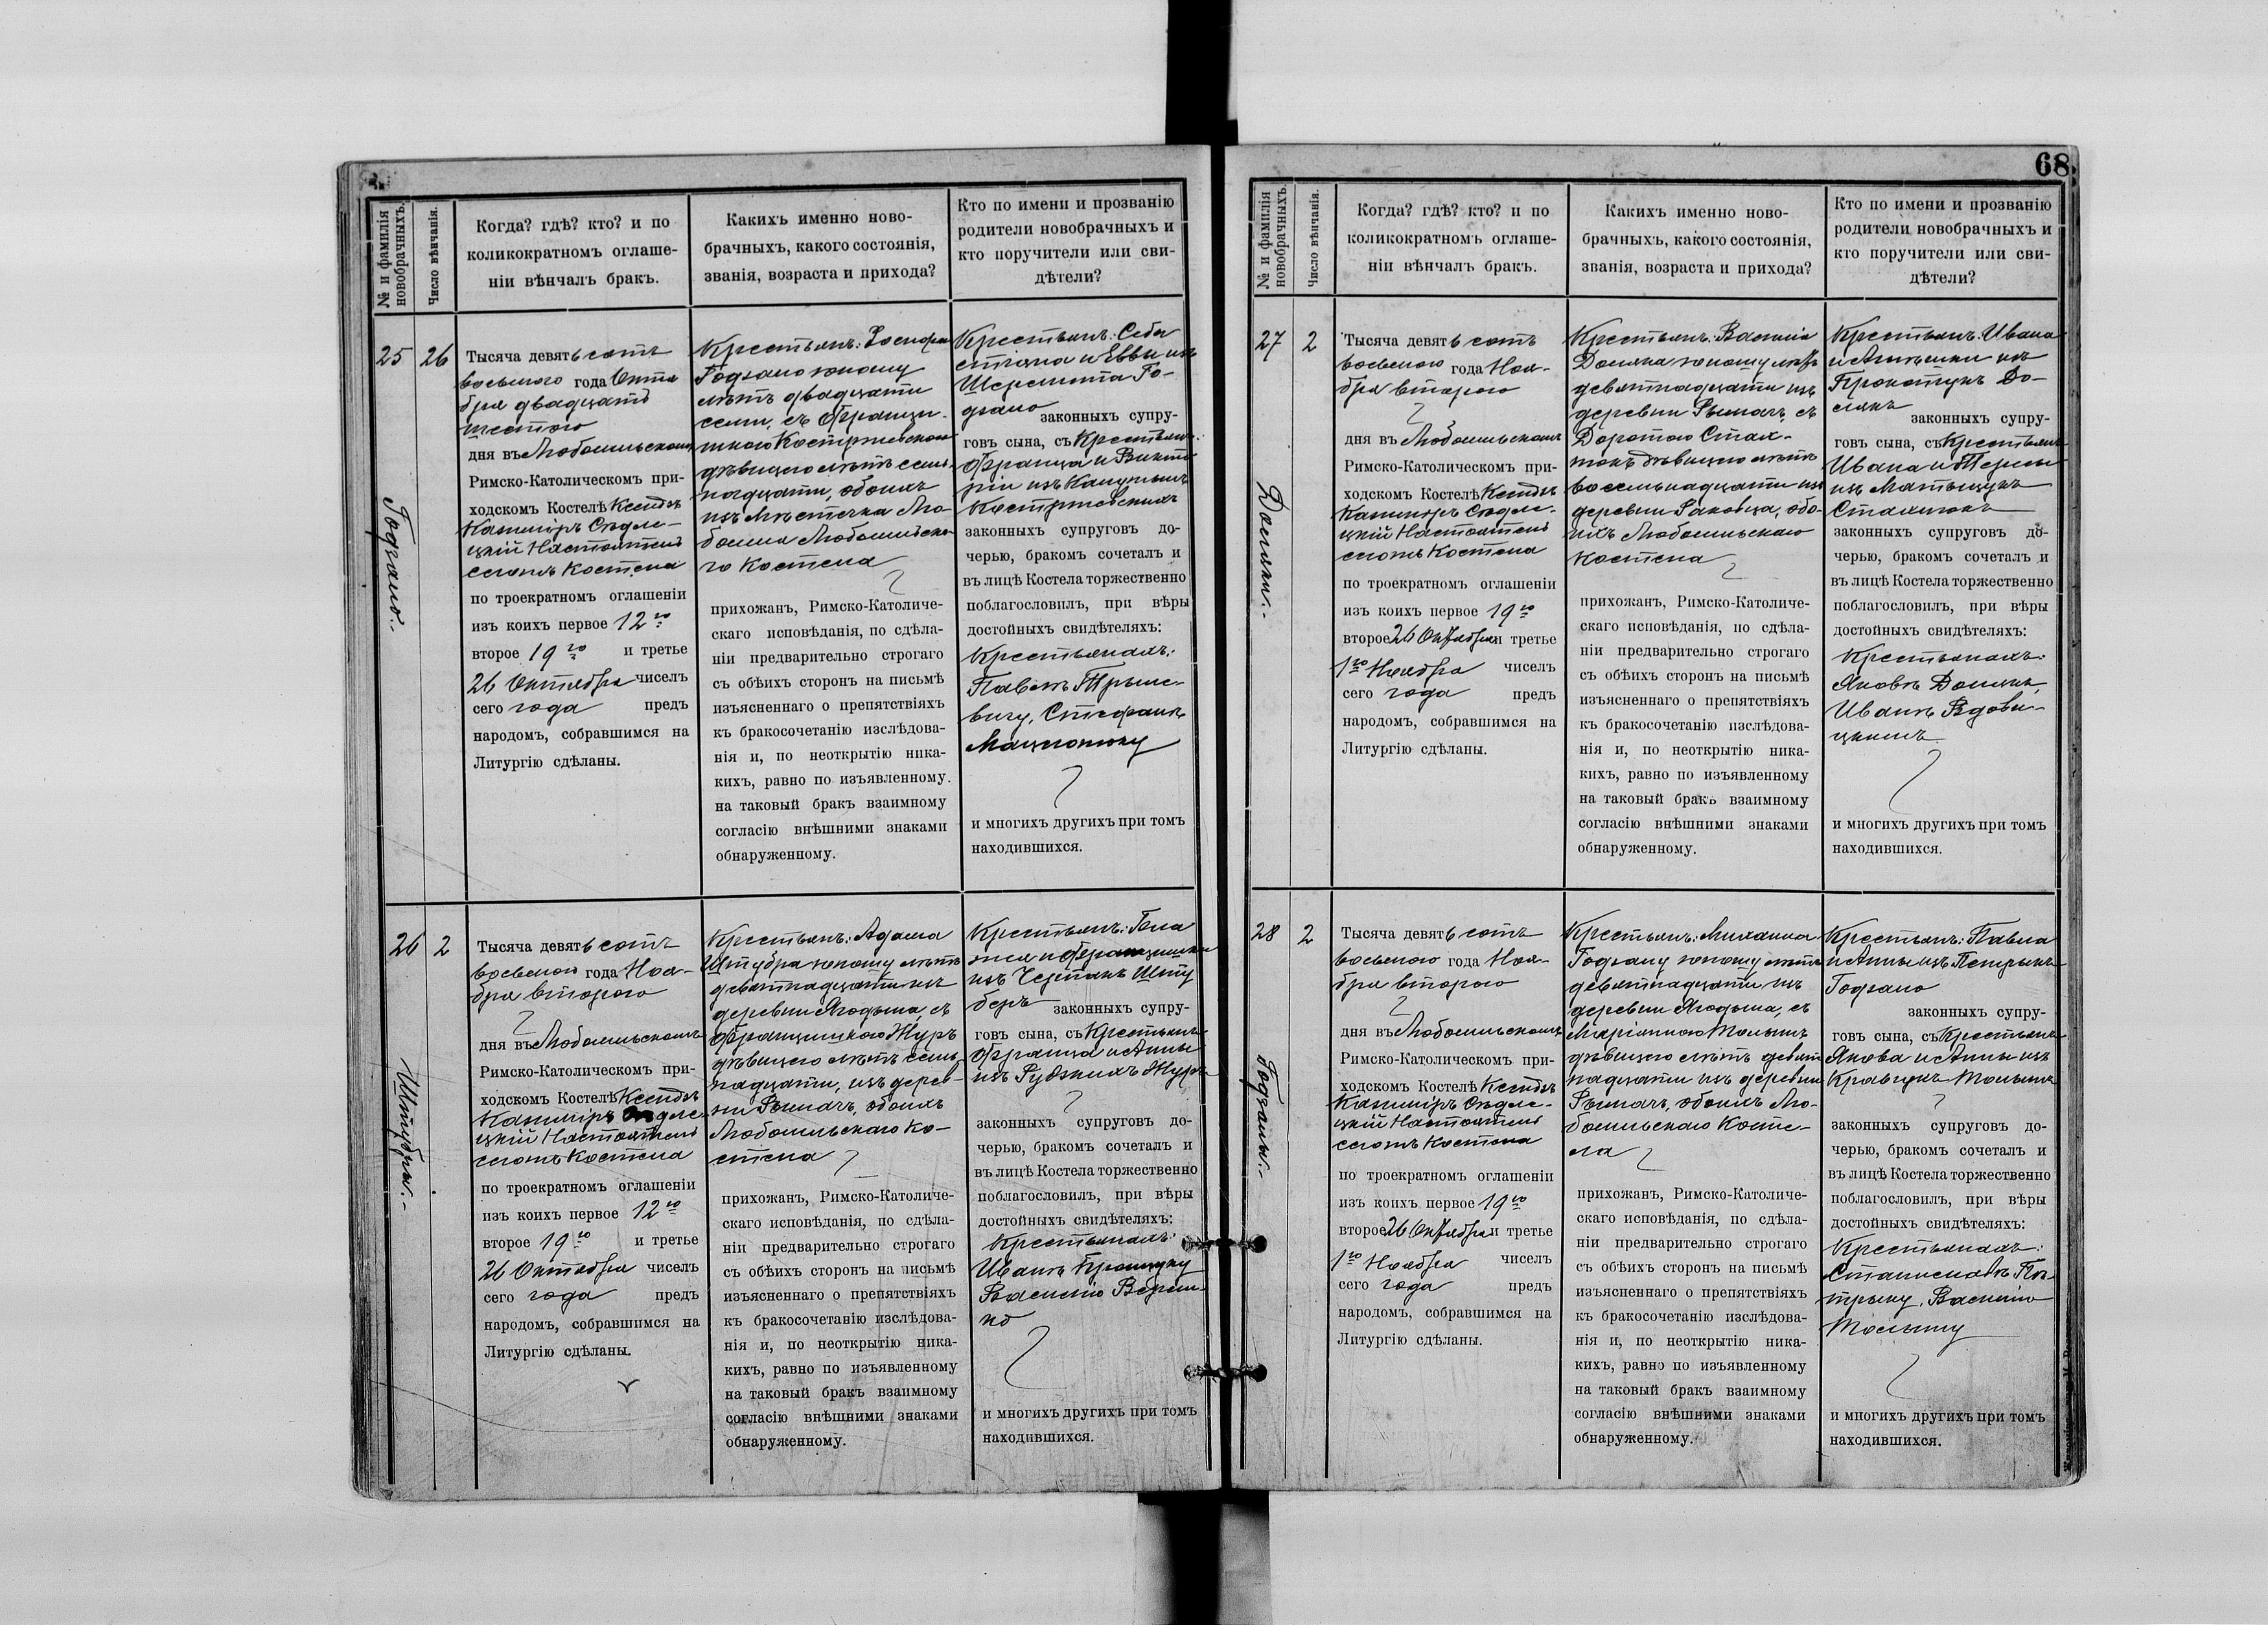 № и фамилія
новобрачныхъ.
Число вѣнчанія.
Когда? гдѣ? кто? и по
коликократномъ оглаше-
ніи вѣнчалъ бракъ.
Какихъ именно ново-
брачныхъ, какого состоянія,
званія, возраста и прихода?
Кто по имени и прозванію
родители новобрачныхъ и
кто поручители или сви-
дѣтели?
25
26
Тысяча девятьсотъ
восьмого года Октя
бря двадцать
шестого
дня въ Любомльскомъ
Римско-Католическомъ при-
ходскомъ Костелѣ Ксендзъ
Казиміръ Сѣдле-
цкій Настоятель
сегожъ Костела
по троекратномъ оглашеніи
изъ коихъ первое 12го
второе 19го и третье
26 Октября чиселъ
сего года предъ
народомъ, собравшимся на
Литургію сдѣланы.
Крестьянъ: Іосифа
Годзаго юношу
лѣтъ двадцати
семи, съ Францы-
дѣвицею лѣтъ сем-
надцати, обоихъ
изъ мѣстечка Лю-
бомля Любомльска-
го Костела
прихожанъ, Римско-Католиче-
скаго исповѣданія, по сдѣла-
ніи предварительно строгаго
съ обѣихъ сторонъ на письмѣ
изъясненнаго о препятствіяхъ
къ бракосочетанію изслѣдова-
нія и, по неоткрытію ника-
кихъ, равно по изъявленному
на таковый бракъ взаимному
согласію внѣшними знаками
обнаруженному.
Крестьянъ: Себа
стіана и Еввы изъ
Шеремета Го-
дзаго законныхъ супру-
говъ сына, съ Крестьянъ:
Франца и Викто
ріи изъ
законныхъ супруговъ до-
черью, бракомъ сочеталъ и
въ лицѣ Костела торжественно
поблагословилъ, при вѣры
достойныхъ свидѣтеляхъ:
Крестьянахъ:
Павелъ
вичу, Стефанъ
Мацюшоку
и многихъ другихъ при томъ
находившихся.
26
2
Штубры.-
Тысяча девятьсотъ
восьмого года Ноя-
бря второго
дня въ Любомльскомъ
Римско-Католическомъ при-
ходскомъ Костелѣ Ксендзъ
Казиміръ Сѣдле-
цкій Настоятель
сегожъ Костела
по троекратномъ оглашеніи
изъ коихъ первое 12го
второе 19го и третье
26 Октября чиселъ
сего года предъ
народомъ, собравшимся на
Литургію сдѣланы.
Крестьянъ: Адама
Штубра юношу лѣтъ
девятнадцати изъ
деревни Ягодына, съ
Францишкою Журъ
дѣвицею лѣтъ семь-
надцати, изъ дерев-
ни Рымачъ, обоихъ
Любомльскаго Ко-
стела
прихожанъ, Римско-Католиче-
скаго исповѣданія, по сдѣла-
ніи предварительно строгаго
съ обѣихъ сторонъ на письмѣ
изъясненнаго о препятствіяхъ
къ бракосочетанію изслѣдова-
нія и, по неоткрытію ника-
кихъ, равно по изъявленному
на таковый бракъ взаимному
согласію внѣшними знаками
обнаруженному.
Крестьянъ: Бла
жея и Францишки
изъ Шту
беръ законныхъ супру-
говъ сына, съ Крестьянъ
Франца и Анны
изъ Рудзкихъ Журъ
законныхъ супруговъ до-
черью, бракомъ сочеталъ и
въ лицѣ Костела торжественно
поблагословилъ, при вѣры
достойныхъ свидѣтеляхъ:
Крестьянахъ:
Иванъ
Василію
и многихъ другихъ при томъ
находившихся.
68
№ и фамилія
новобрачныхъ.
Число вѣнчанія.
Когда? гдѣ? кто? и по
коликократномъ оглаше-
ніи вѣнчалъ бракъ.
Какихъ именно ново-
брачныхъ, какого состоянія,
званія, возраста и прихода?
Кто по имени и прозванію
родители новобрачныхъ и
кто поручители или сви-
дѣтели?
27
2
Тысяча девятьсотъ
восьмого года Ноя-
бря второго
дня въ Любомльскомъ
Римско-Католическомъ при-
ходскомъ Костелѣ Ксендзъ
Казиміръ Сѣдле-
цкій Настоятель
сегожъ Костела
по троекратномъ оглашеніи
изъ коихъ первое 19го
второе 26 Октября и третье
1го Ноября чиселъ
сего года предъ
народомъ, собравшимся на
Литургію сдѣланы.
Крестьянъ: Василія
юношу лѣтъ
девятнадцати изъ
деревни Рымачъ, съ
Доротою Стах-
дѣвицею лѣтъ
восемьнадцати изъ
деревни Раковца, обо-
ихъ Любомльскаго
Костела
прихожанъ, Римско-Католиче-
скаго исповѣданія, по сдѣла-
ніи предварительно строгаго
съ обѣихъ сторонъ на письмѣ
изъясненнаго о препятствіяхъ
къ бракосочетанію изслѣдова-
нія и, по неоткрытію ника-
кихъ, равно по изъявленному
на таковый бракъ взаимному
согласію внѣшними знаками
обнаруженному.
Крестьянъ: Ивана
и Агнѣшки изъ
законныхъ супру-
говъ сына, съ Крестьянъ
Ивана и Терезы
изъ
законныхъ супруговъ до-
черью, бракомъ сочеталъ и
въ лицѣ Костела торжественно
поблагословилъ, при вѣры
достойныхъ свидѣтеляхъ:
Крестьянахъ:
Яковъ
Иванъ Вдови-
и многихъ другихъ при томъ
находившихся.
28
2
Тысяча девятьсотъ
восьмого года Ноя-
бря второго
дня въ Любомльскомъ
Римско-Католическомъ при-
ходскомъ Костелѣ Ксендзъ
Казиміръ Сѣдле-
цкій Настоятель
сегожъ Костела
по троекратномъ оглашеніи
изъ коихъ первое 19го
второе 26 Октября и третье
1го Ноября чиселъ
сего года предъ
народомъ, собравшимся на
Литургію сдѣланы.
Крестьянъ: Михаила
юношу лѣтъ
девятнадцати изъ
деревни Ягодына, съ
Маріанною
дѣвицею лѣтъ девят
надцати изъ деревни
Рымачъ, обоихъ Лю-
бомльскаго Косте-
ла
прихожанъ, Римско-Католиче-
скаго исповѣданія, по сдѣла-
ніи предварительно строгаго
съ обѣихъ сторонъ на письмѣ
изъясненнаго о препятствіяхъ
къ бракосочетанію изслѣдова-
нія и, по неоткрытію ника-
кихъ, равно по изъявленному
на таковый бракъ взаимному
согласію внѣшними знаками
обнаруженному.
Крестьянъ: Павла
и Анны изъ
законныхъ супру-
говъ сына, съ Крестьянъ
Якова и Анны изъ
законныхъ супруговъ до-
черью, бракомъ сочеталъ и
въ лицѣ Костела торжественно
поблагословилъ, при вѣры
достойныхъ свидѣтеляхъ:
Крестьянахъ:
Станиславъ Пѣ-
трыку, Василію
и многихъ другихъ при томъ
находившихся.